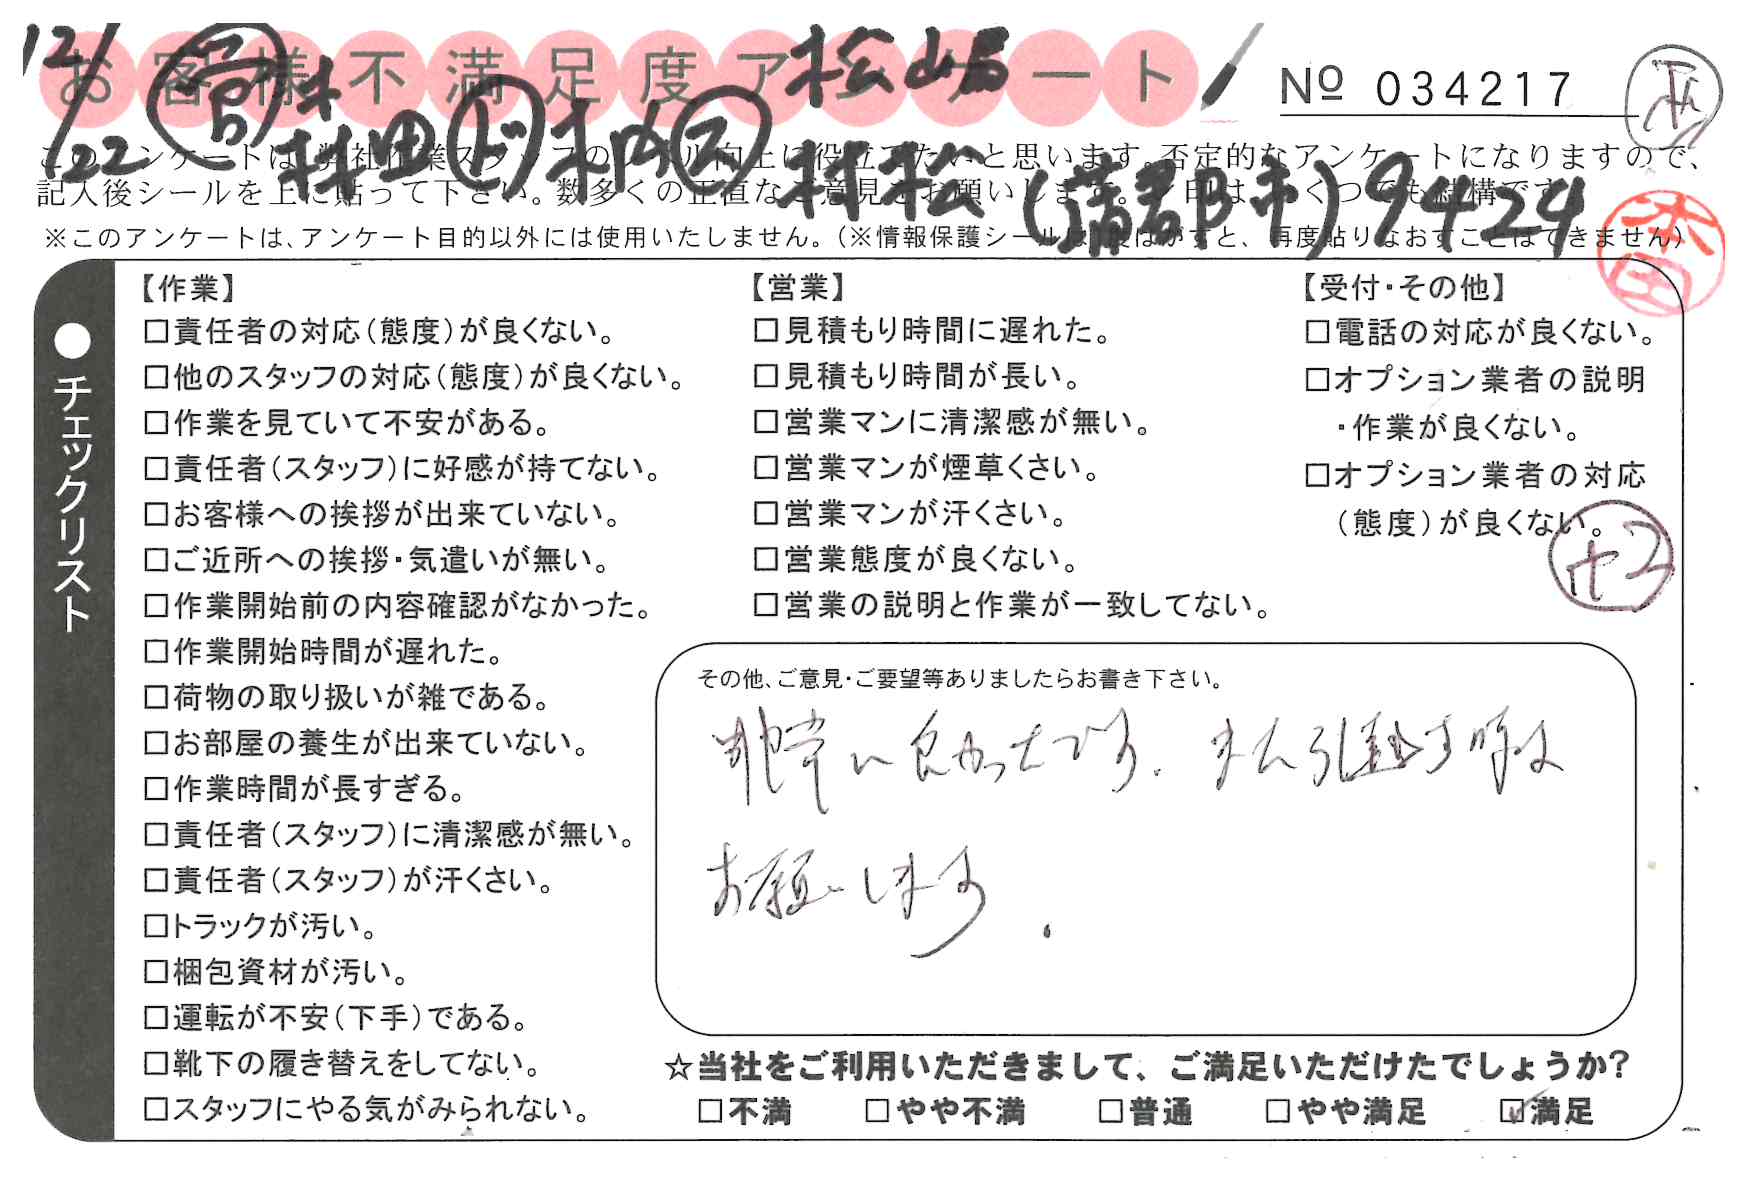 お客様不満足度アンケート
12/22
村田 ビ 木内 ス 松嶋
村松 (蒲郡市) 9424
№ 034217
このアンケートは、弊社作業スタッフのレベル向上に役立てたいと思います。否定的なアンケートになりますので、
記入後シールを上に貼って下さい。数多くの正直なご意見をお願いします。レ印は、いくつでも結構です。
※このアンケートは、アンケート目的以外には使用いたしません。(※情報保護シールは1度はがすと、再度貼りなおすことはできません)
本田
●チェックリスト
【作業】
□責任者の対応(態度)が良くない。
□他のスタッフの対応(態度)が良くない。
□作業を見ていて不安がある。
□責任者(スタッフ)に好感が持てない。
□お客様への挨拶が出来ていない。
□ご近所への挨拶・気遣いが無い。
□作業開始前の内容確認がなかった。
□作業開始時間が遅れた。
□荷物の取り扱いが雑である。
□お部屋の養生が出来ていない。
□作業時間が長すぎる。
□責任者(スタッフ)に清潔感が無い。
□責任者(スタッフ)が汗くさい。
□トラックが汚い。
□梱包資材が汚い。
□運転が不安(下手)である。
□靴下の履き替えをしてない。
□スタッフにやる気がみられない。
【営業】
□見積もり時間に遅れた。
□見積もり時間が長い。
□営業マンに清潔感が無い。
□営業マンが煙草くさい。
□営業マンが汗くさい。
□営業態度が良くない。
□営業の説明と作業が一致してない。
【受付・その他】
□電話の対応が良くない。
□オプション業者の説明
・作業が良くない。
□オプション業者の対応
(態度)が良くない。
その他、ご意見・ご要望等ありましたらお書き下さい。
非常に良かったです。また引越す時は
お願いします。
☆当社をご利用いただきまして、ご満足いただけたでしょうか?
□不満 □やや不満 □普通 □やや満足 ☑満足